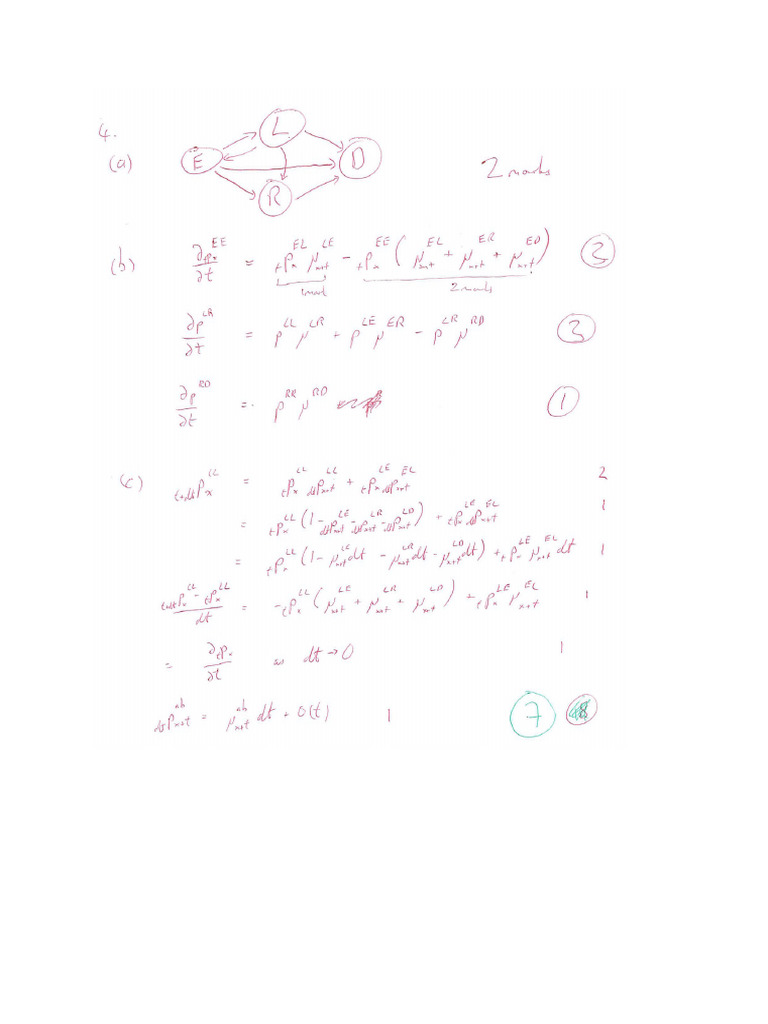 4.
(a) E L R D 2 marks
(b) ∂ₜpₓ^EE / ∂t = ₜpₓ^EL μₓ₊ₜ^LE − ₜpₓ^EE (μₓ₊ₜ^EL + μₓ₊ₜ^ER + μₓ₊ₜ^ED) 3
1 mark 2 marks
∂p^LR / ∂t = p^LL μ^LR + p^LE μ^ER − p^LR μ^RD 3
∂p^RD / ∂t = p^RR μ^RD 1
(c) ₜ₊dₜpₓ^LL = ₜpₓ^LL dₜpₓ₊ₜ^LL + ₜpₓ^LE dₜpₓ₊ₜ^EL 2
= ₜpₓ^LL (1 − dₜpₓ₊ₜ^LE − dₜpₓ₊ₜ^LR − dₜpₓ₊ₜ^LD) + ₜpₓ^LE dₜpₓ₊ₜ^EL 1
= ₜpₓ^LL (1 − μₓ₊ₜ^LE dt − μₓ₊ₜ^LR dt − μₓ₊ₜ^LD dt) + ₜpₓ^LE μₓ₊ₜ^EL dt 1
(ₜ₊dₜpₓ^LL − ₜpₓ^LL) / dt = −ₜpₓ^LL (μₓ₊ₜ^LE + μₓ₊ₜ^LR + μₓ₊ₜ^LD) + ₜpₓ^LE μₓ₊ₜ^EL 1
= ∂ₜpₓ / ∂t as dt → 0 1
dₜpₓ₊ₜ^ab = μₓ₊ₜ^ab dt + o(t) 1 7